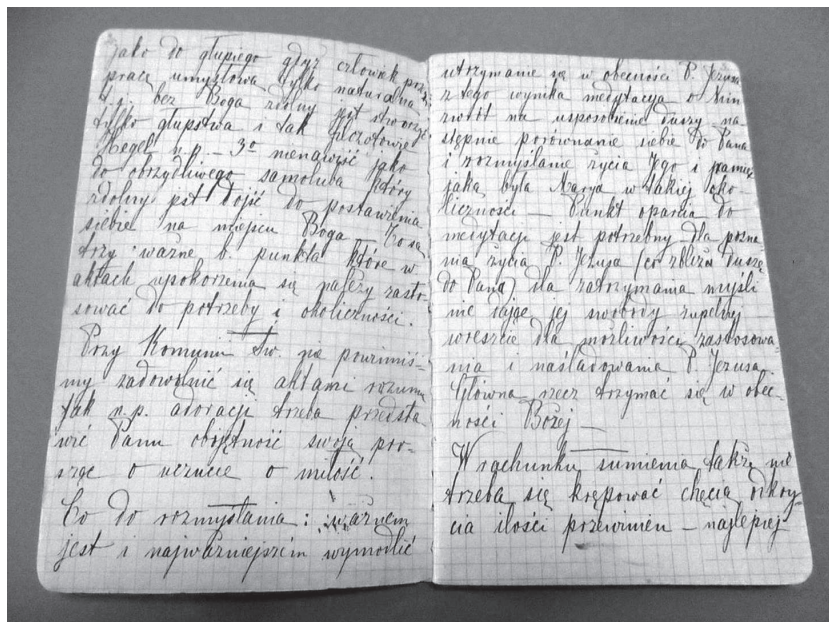 jako do głupiego gdyż człowiek
pracą umysłową tylko naturalną
t.j. bez Boga zdolny jest stworzyć
tylko głupstwa i tak
Hegel n.p. – 3º nienawiść jako
do obrzydliwego samoluba który
zdolny jest dojść do postawienia
siebie na miejscu Boga – To są
trzy ważne b. punkta które w
aktach upokorzenia się należy zasto-
sować do potrzeby i okoliczności.
Przy Komunii Św. nie powinniś-
my zadowolnić się aktami rozumu
tak n.p. adoracji trzeba przedsta
wić Panu obojętność swoją pro-
sząc o uczucie o miłość.
Co do rozmyślania : ważnem
jest i najważniejszem wymodlić
utrzymanie się w obecności P. Jezusa
z tego wynika medytacja o Nim
zwrót na usposobienie duszy na-
stępnie porównanie siebie do Pana
i rozmyślanie życia Jego i
jaką była Marya w takiej oko-
liczności – Punkt oparcia do
medytacji jest potrzebny dla pozna
nia życia P. Jezusa (co zbliża duszę
do Pana) dla zatrzymania myśli
nie dając jej swobody zupełnej
wreszcie dla możliwości zastosowa
nia i naśladowania P. Jezusa.
Główna rzecz trzymać się w obec-
ności Bożej –
W rachunku sumienia także nie
trzeba się krępować chęcią odkry-
cia ilości przewinień – najlepiej